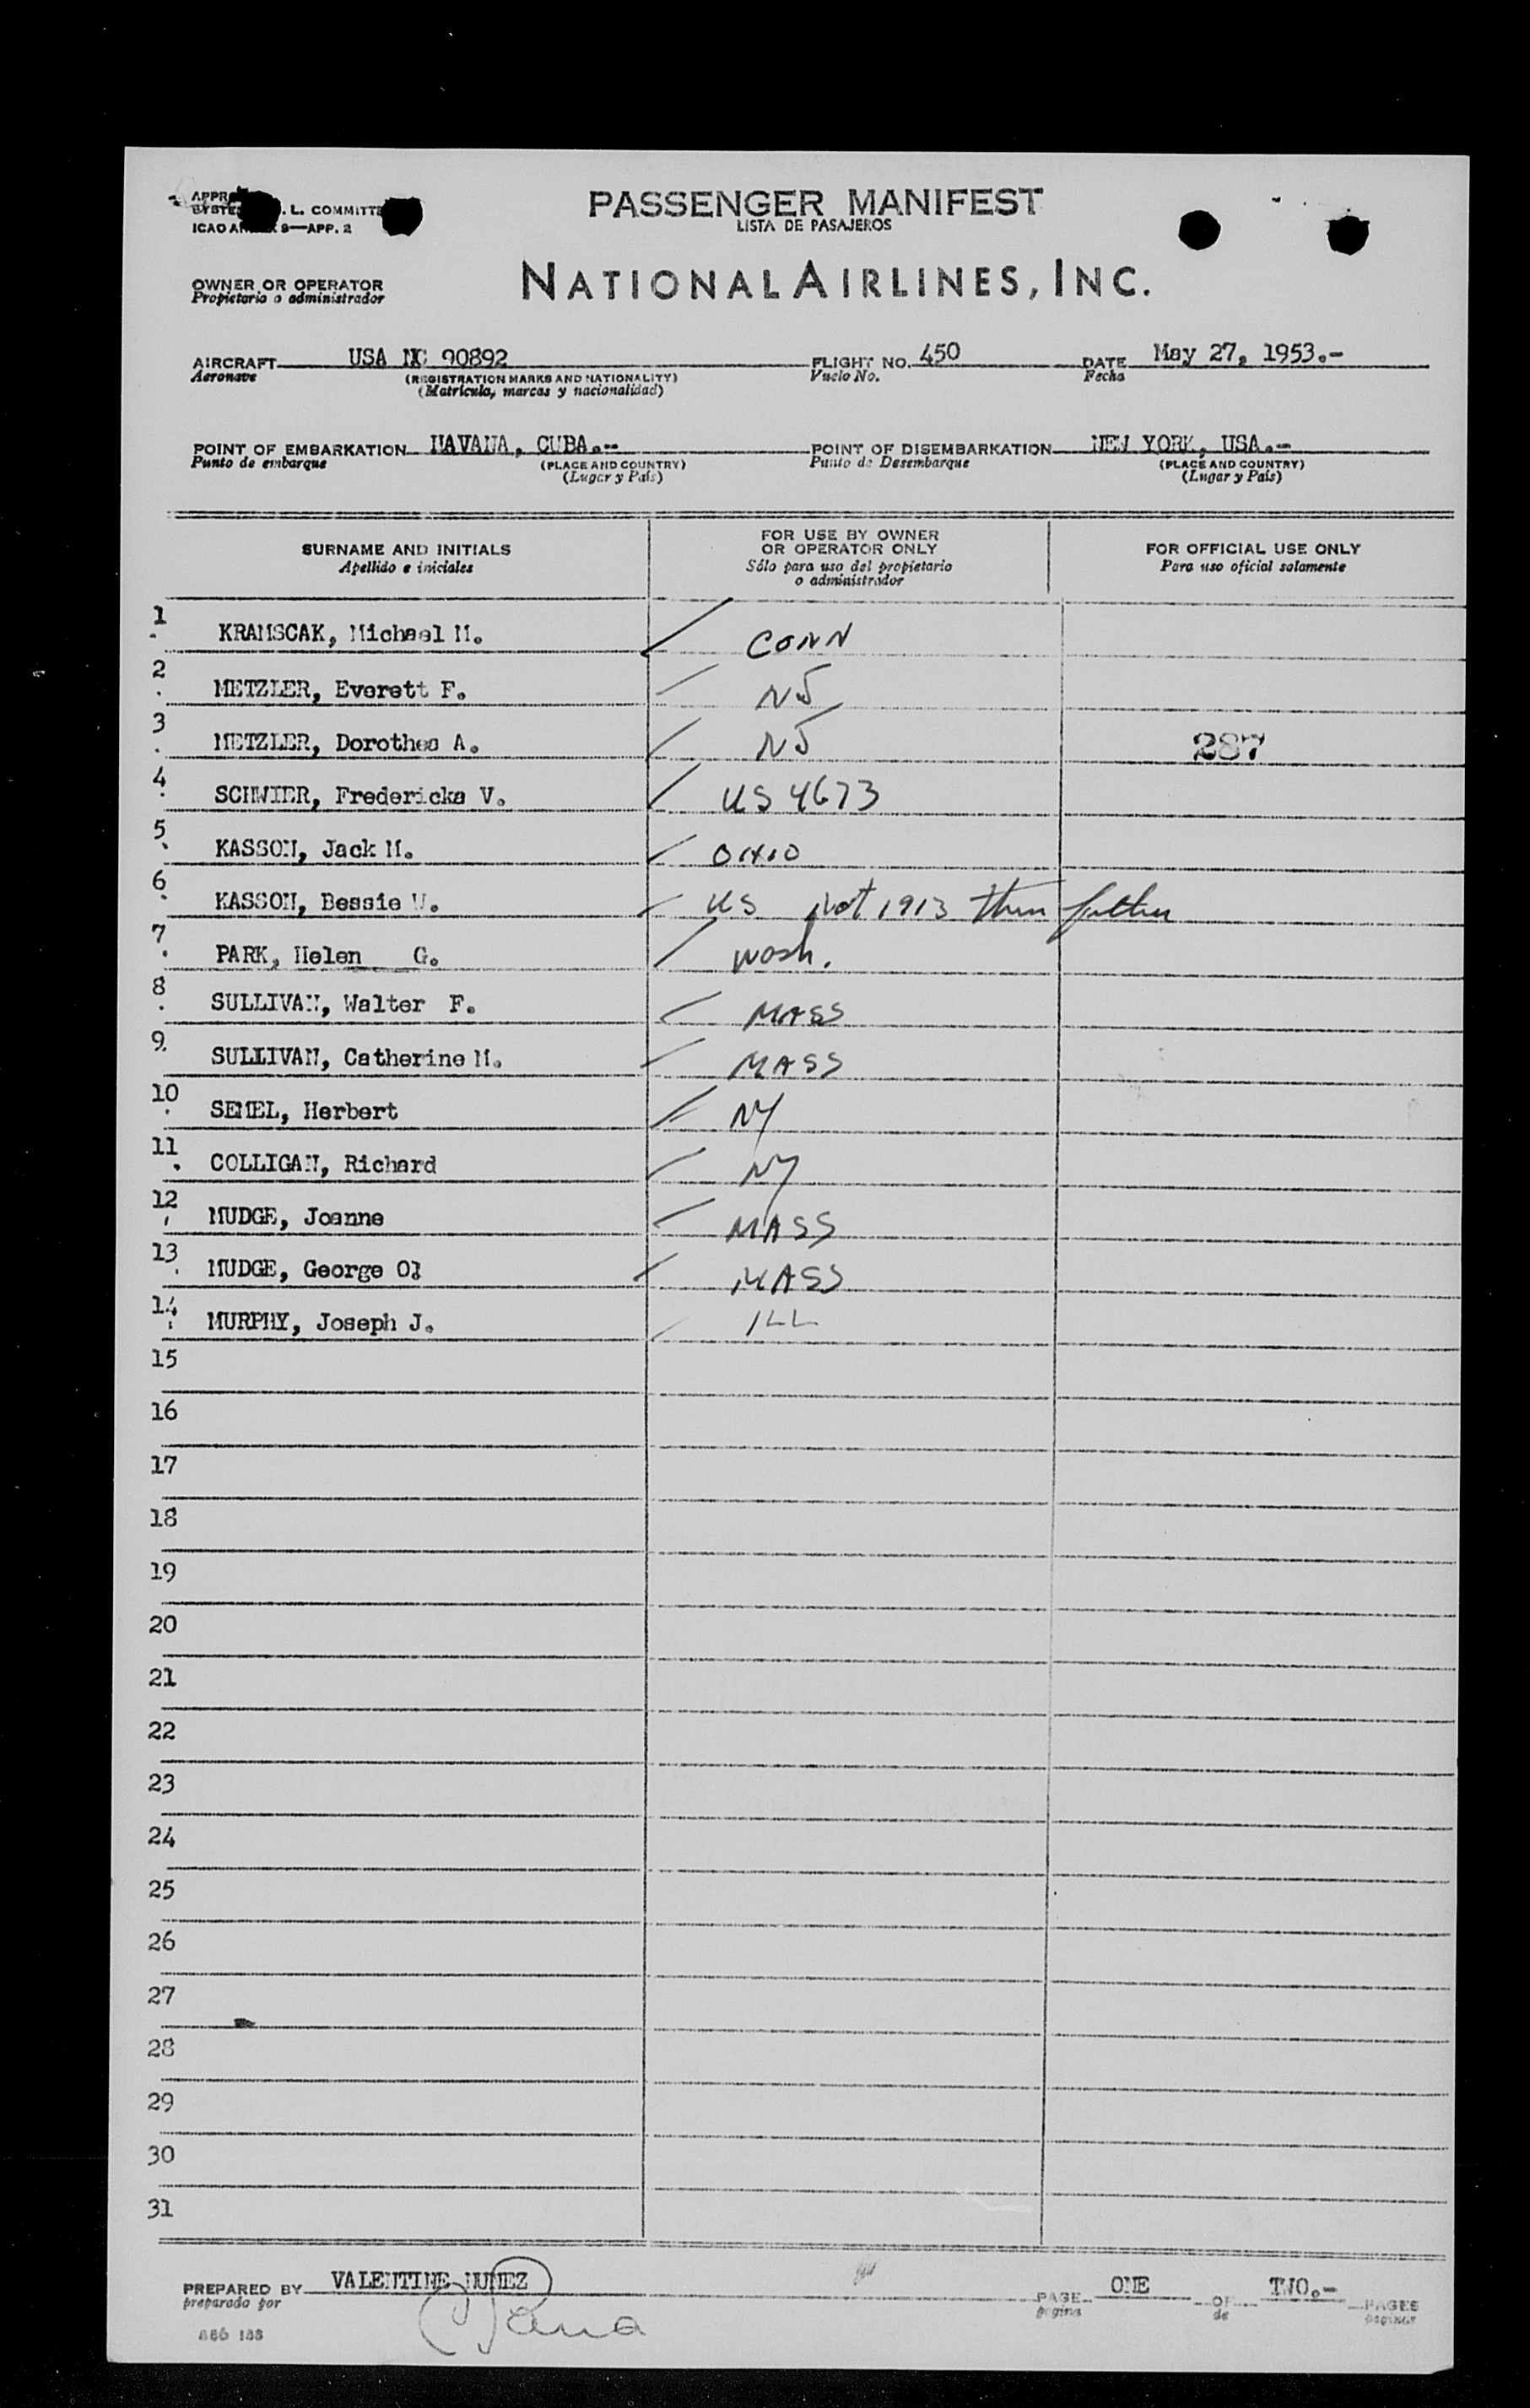 PASSENGER MANIFEST
LISTA DE PASAJEROS
L. COMMITT
ICAO 9—APP. 2
OWNER OR OPERATOR
Propietario o administrador
NATIONAL AIRLINES, INC.
AIRCRAFT USA NC 90892 FLIGHT NO. 450 DATE May 27, 1953.-
Aeronave (REGISTRATION MARKS AND NATIONALITY) Vuelo No. Fecha
(Matrícula, marcas y nacionalidad)
POINT OF EMBARKATION HAVANA, CUBA.-- POINT OF DISEMBARKATION NEW YORK, USA.-
Punto de embarque (PLACE AND COUNTRY) Punto de Desembarque (PLACE AND COUNTRY)
(Lugar y País) (Lugar y País)
SURNAME AND INITIALS FOR USE BY OWNER OR OPERATOR ONLY FOR OFFICIAL USE ONLY
Apellido e iniciales Sólo para uso del propietario o administrador Para uso oficial solamente
1 KRAMSCAK, Michael M. CONN
2 METZLER, Everett F. NJ
3 METZLER, Dorothea A. NJ 287
4 SCHWIER, Fredericka V. US 4673
5 KASSON, Jack M. OHIO
6 KASSON, Bessie W. US Nat 1913 thru father
7 PARK, Helen G. Wash.
8 SULLIVAN, Walter F. MASS
9 SULLIVAN, Catherine M. MASS
10 SEMEL, Herbert NY
11 COLLIGAN, Richard NY
12 MUDGE, Joanne MASS
13 MUDGE, George MASS
14 MURPHY, Joseph J. ILL
15
16
17
18
19
20
21
22
23
24
25
26
27
28
29
30
31
PREPARED BY VALENTINE NUNEZ PAGE ONE OF TWO.- PAGES
preparado por página de páginas